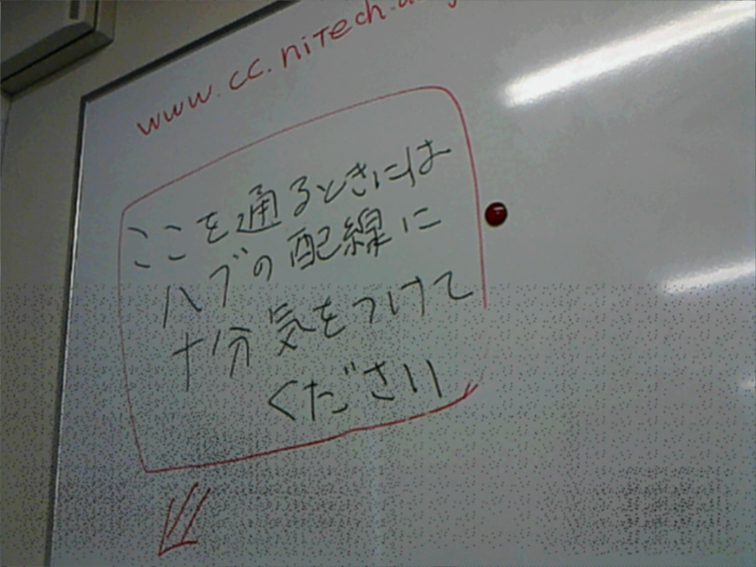 www.cc.nitech.ac
ここを通るときには
ハブの配線に
十分気をつけて
ください